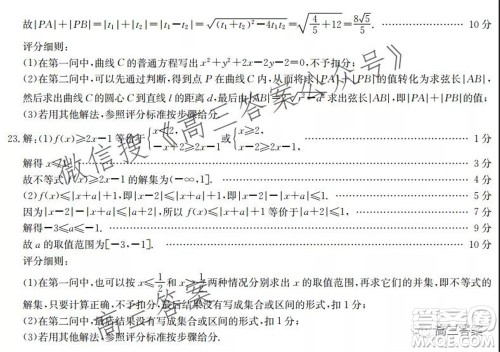 故|PA|+|PB|=|t₁|+|t₂|=|t₁-t₂|=√((t₁+t₂)²-4t₁t₂)=√(4/5+12)=8√5/5. 10分
评分细则:
(1)在第一问中,曲线C的普通方程写成x²+y²+2x-2y-2=0,不予扣分;
(2)在第二问中,可以先通过判断,得到点P在曲线C内,从而将求|PA|+|PB|的值转化为求弦长|AB|,
然后求出曲线C的圆心C到直线l的距离d,最后由|AB|=2√(r²-d²)求出弦长|AB|,即|PA|+|PB|的值;
(3)若用其他解法,参照评分标准按步骤给分.
23.解:(1)f(x)≥2x-1等价于{x<2, -x+2≥2x-1 或{x≥2, x-2≥2x-1, 1分
解得x≤1. 3分
故不等式f(x)≥2x-1的解集为(-∞,1]. 4分
(2)f(x)≤|x+a|+1,即|x-2|≤|x+a|+1,即|x-2|-|x+a|≤1. 5分
因为|x-2|-|x+a|≤|a+2|,所以f(x)≤|x+a|+1等价于|a+2|≤1, 7分
解得-3≤a≤-1. 9分
故a的取值范围为[-3,-1]. 10分
评分细则:
(1)在第一问中,也可以按x≤1/2和x>1/2两种情况分别求出x的取值范围,再求它们的并集,即不等式的
解集,只要计算正确,不予扣分,最后结果没有写成集合或区间的形式,扣1分;
(2)在第二问中,最后结果没有写成集合或区间的形式,扣1分;
(3)若用其他解法,参照评分标准按步骤给分.
微信搜《高三答案公众号》
高三答案
高三答案